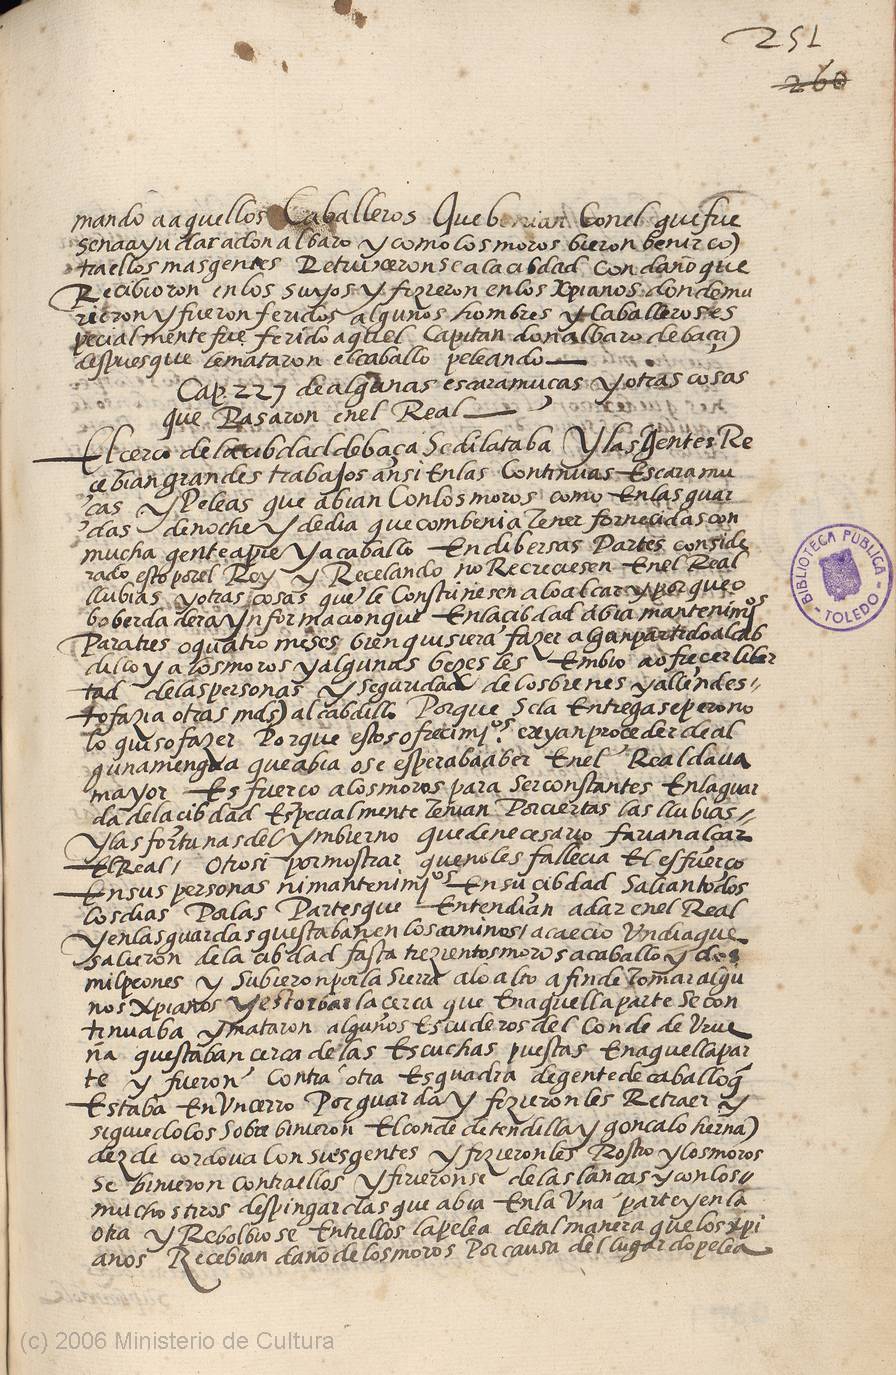 251
260
mando a aquellos Caballeros Que benian Conel que fue
sen a ayudar a don albaro y como los moros bieron benir co)
tra ellos mas gentes Retruxeronse a la cibdad con daño que
Recibioron en los suyos y fizieron en los Xpianos donde mu
rieron y fueron feridos algunos hombres y Caballeros es
pecialmente fue ferido aquel Capitan don albaro de baça)
despues que le mataron el caballo peleando
Cap 227 de algunas escaramuças y otras cosas
que Pasaron en el Real
El cerco de la cibdad de baça Se dilataba Y las gentes Re
cebian grandes trabajos ansi En las Continuas Escaramu
ças y Peleas que abian Con los moros como En las guar
das de noche y de dia que combenia Tener fornecidas con
mucha gente a pie y a caballo En dibersas Partes conside
rado esto por el Rey y Recelando no Recreciesen En el Real
llubias y otras cosas que le Constriñesen a lo alcar y porque o
bo berdadera ynformacion que En la cibdad abia mantenimjos
Para tres o quatro meses bien quisiera fazer algan partido al cab
dillo y a los moros y algunas bezes les Embio a ofrecer liber
tad de las personas y seguridad de los bienes y allende s
to fazia otras mds) al cabdillo Porque Se la Entregase pero no
lo quiso fazer Porque estos ofrecimjos creyan proceder de al
guna mengua que abia o se esperaba aber En el Real daua
mayor Esfuerco a los moros para Ser constantes En la guar
da de la cibdad Especialmente Tenian Por ciertas las llubias
y las fortunas del ymbierno que de necesario farian alcar
El Real / Otrosi por mostrar que no les fallecia El esfuerco
En sus personas ni mantenimjos En su cibdad Salian todos
los dias Por las Partes que Entendian a dar en el Real
y en las guardas questaban en los caminos / acaecio Un dia que
salieron de la cibdad fasta trezientos moros a caballo y dos
mil peones y Subieron por la Sierra a lo alto a fin de Tomar algu
nos Xpianos y estorbar la cerca que En aquella parte Se con
tinuaba y mataron algunos Escuderos del Conde de Urue
ña questaban cerca de las Escuchas puestas En aquella par
te y fueron Contra otra Esquadra de gente de caballo q̃
Estaba En Un cerro Por guarda y fizieronles Retraer y
siguiedolos Sobre binieron El conde de tendilla y gonçalo herña)
dez de cordova Con sus gentes y fizieronles Rostro y los moros
se binieron contra ellos y firieronse de las lanças y con los
muchos tiros despingardas que abia En la Una parte y en la
otra y Rebolbiose Entrellos la pelea de tal manera que los xpi
anos Recebian daño de los moros Por causa del lugar do pelea
BIBLIOTECA PÚBLICA
- TOLEDO -
(c) 2006 Ministerio de Cultura